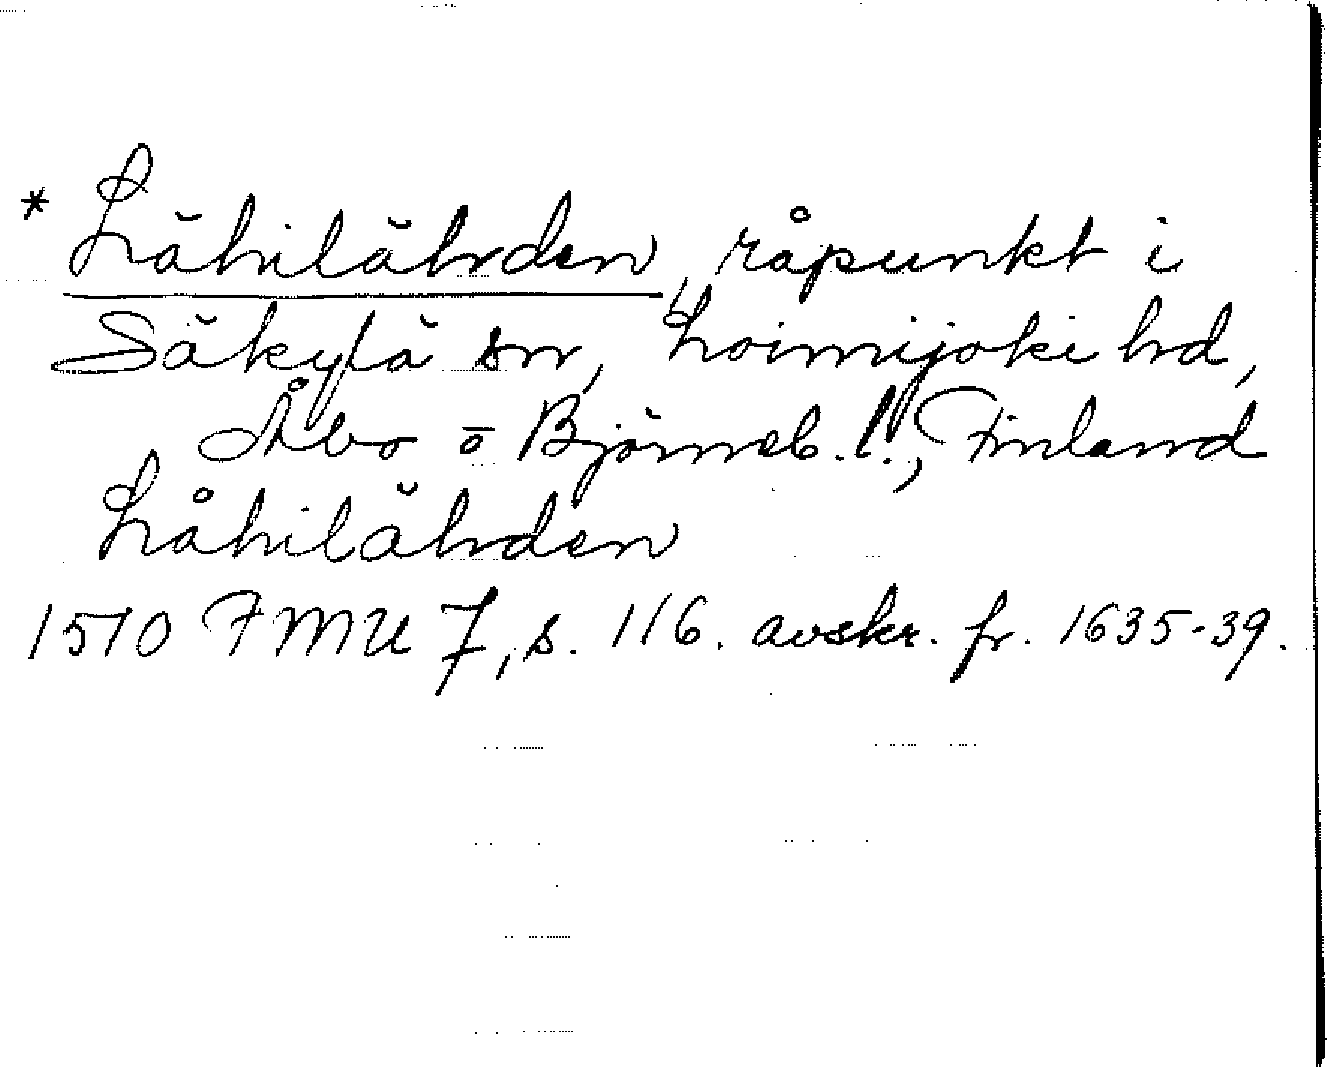 * Lähilährden, råpunkt i
Säkylä sn, Loimijoki hd,
Åbo o Björneb. l., Finland
Låhilährden
1570 FMU 7, s. 116. avskr. fr. 1635-39.